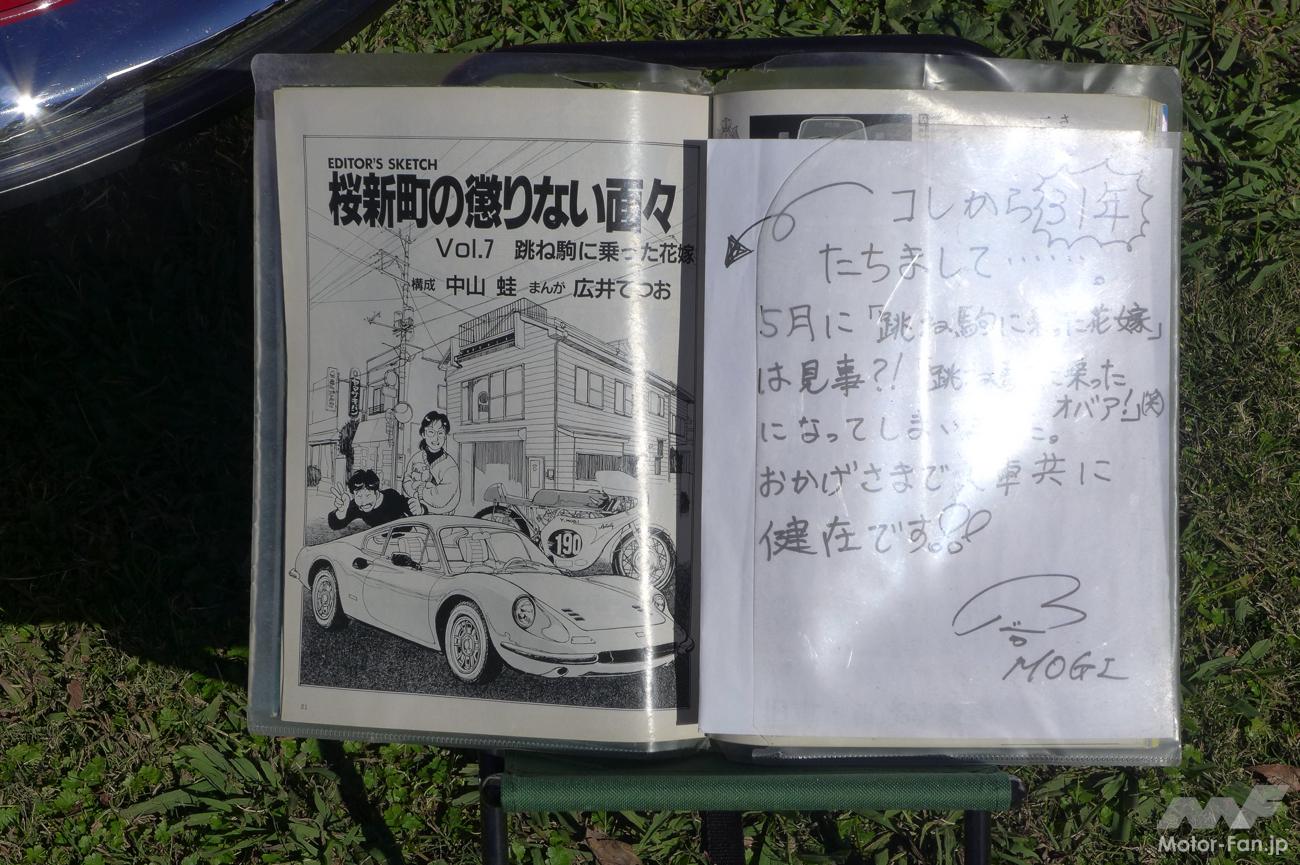 EDITOR'S SKETCH
桜新町の懲りない面々
Vol.7 跳ね駒に乗った花嫁
構成 中山 蛙 まんが 広井てつお
ヤマザキパン
190
81
コレから31年
たちまして……。
5月に「跳ね駒に乗った花嫁」
は見事?! 跳 乗った
オバア!」(笑)
になってしまい た。
おかげさまで 車共に
健在です!!
MOGI
Motor-Fan.jp